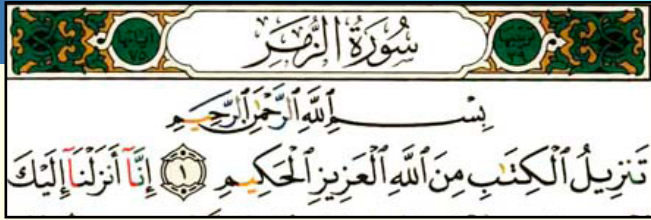 سُورَةُ الزُّمَرِ
بِسْمِ ٱللَّهِ ٱلرَّحْمَٰنِ ٱلرَّحِيمِ
تَنزِيلُ ٱلْكِتَٰبِ مِنَ ٱللَّهِ ٱلْعَزِيزِ ٱلْحَكِيمِ ١ إِنَّآ أَنزَلْنَآ إِلَيْكَ